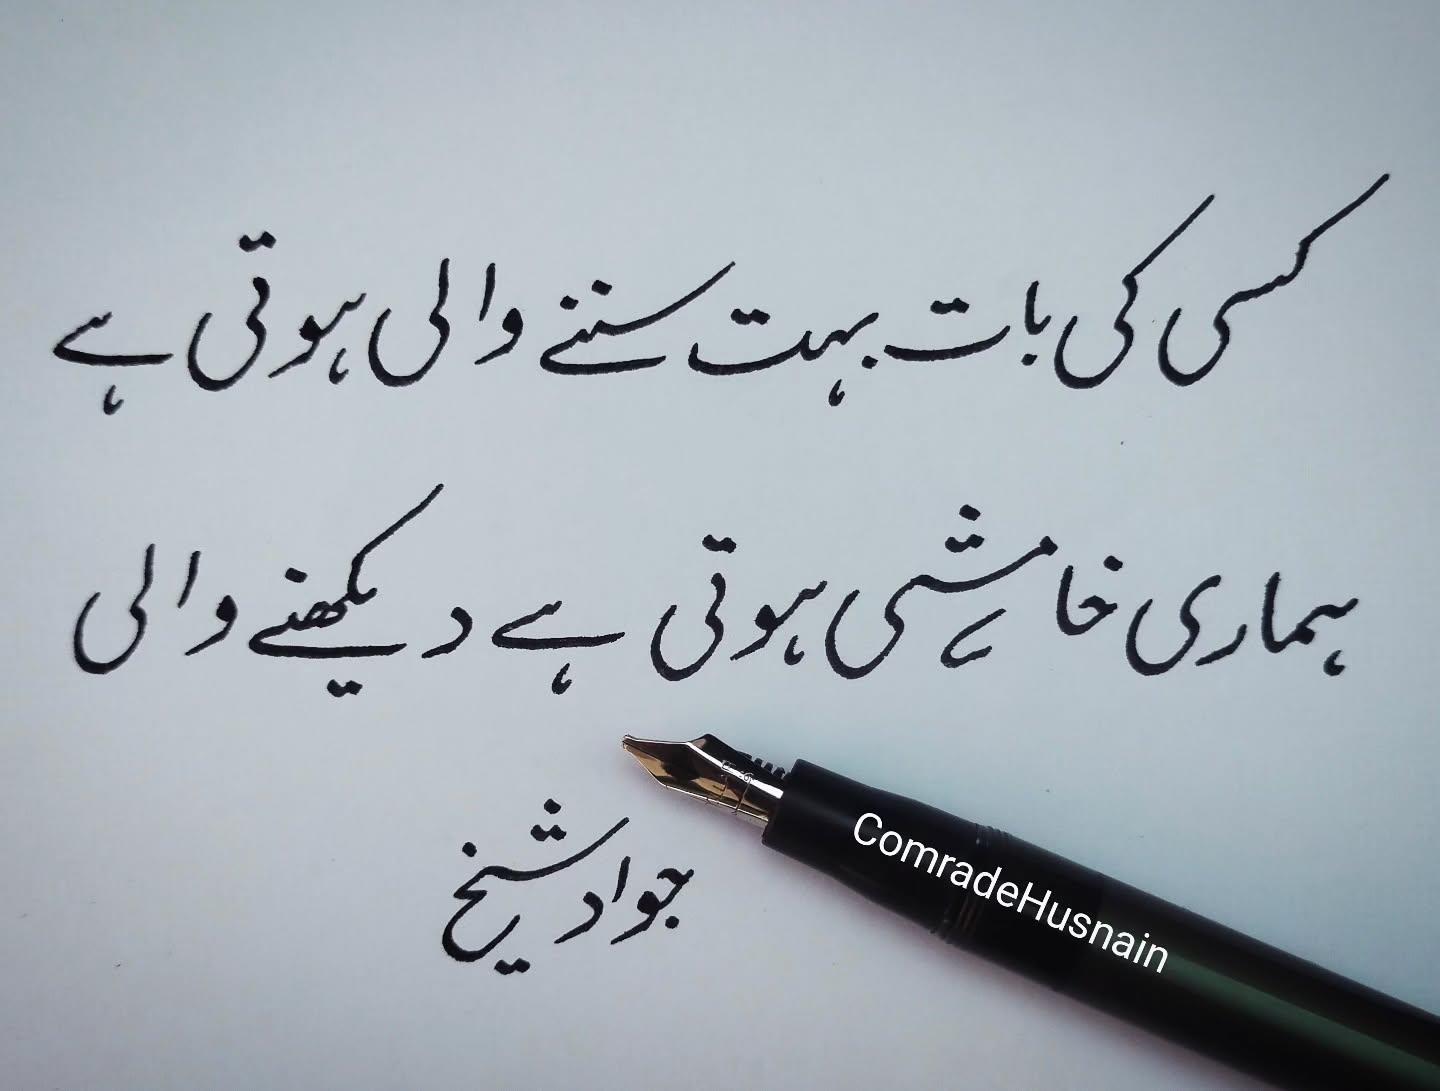 کسی کی بات بہت سننے والی ہوتی ہے
ہماری خامشی ہوتی ہے دیکھنے والی
جواد شیخ
ComradeHusnain